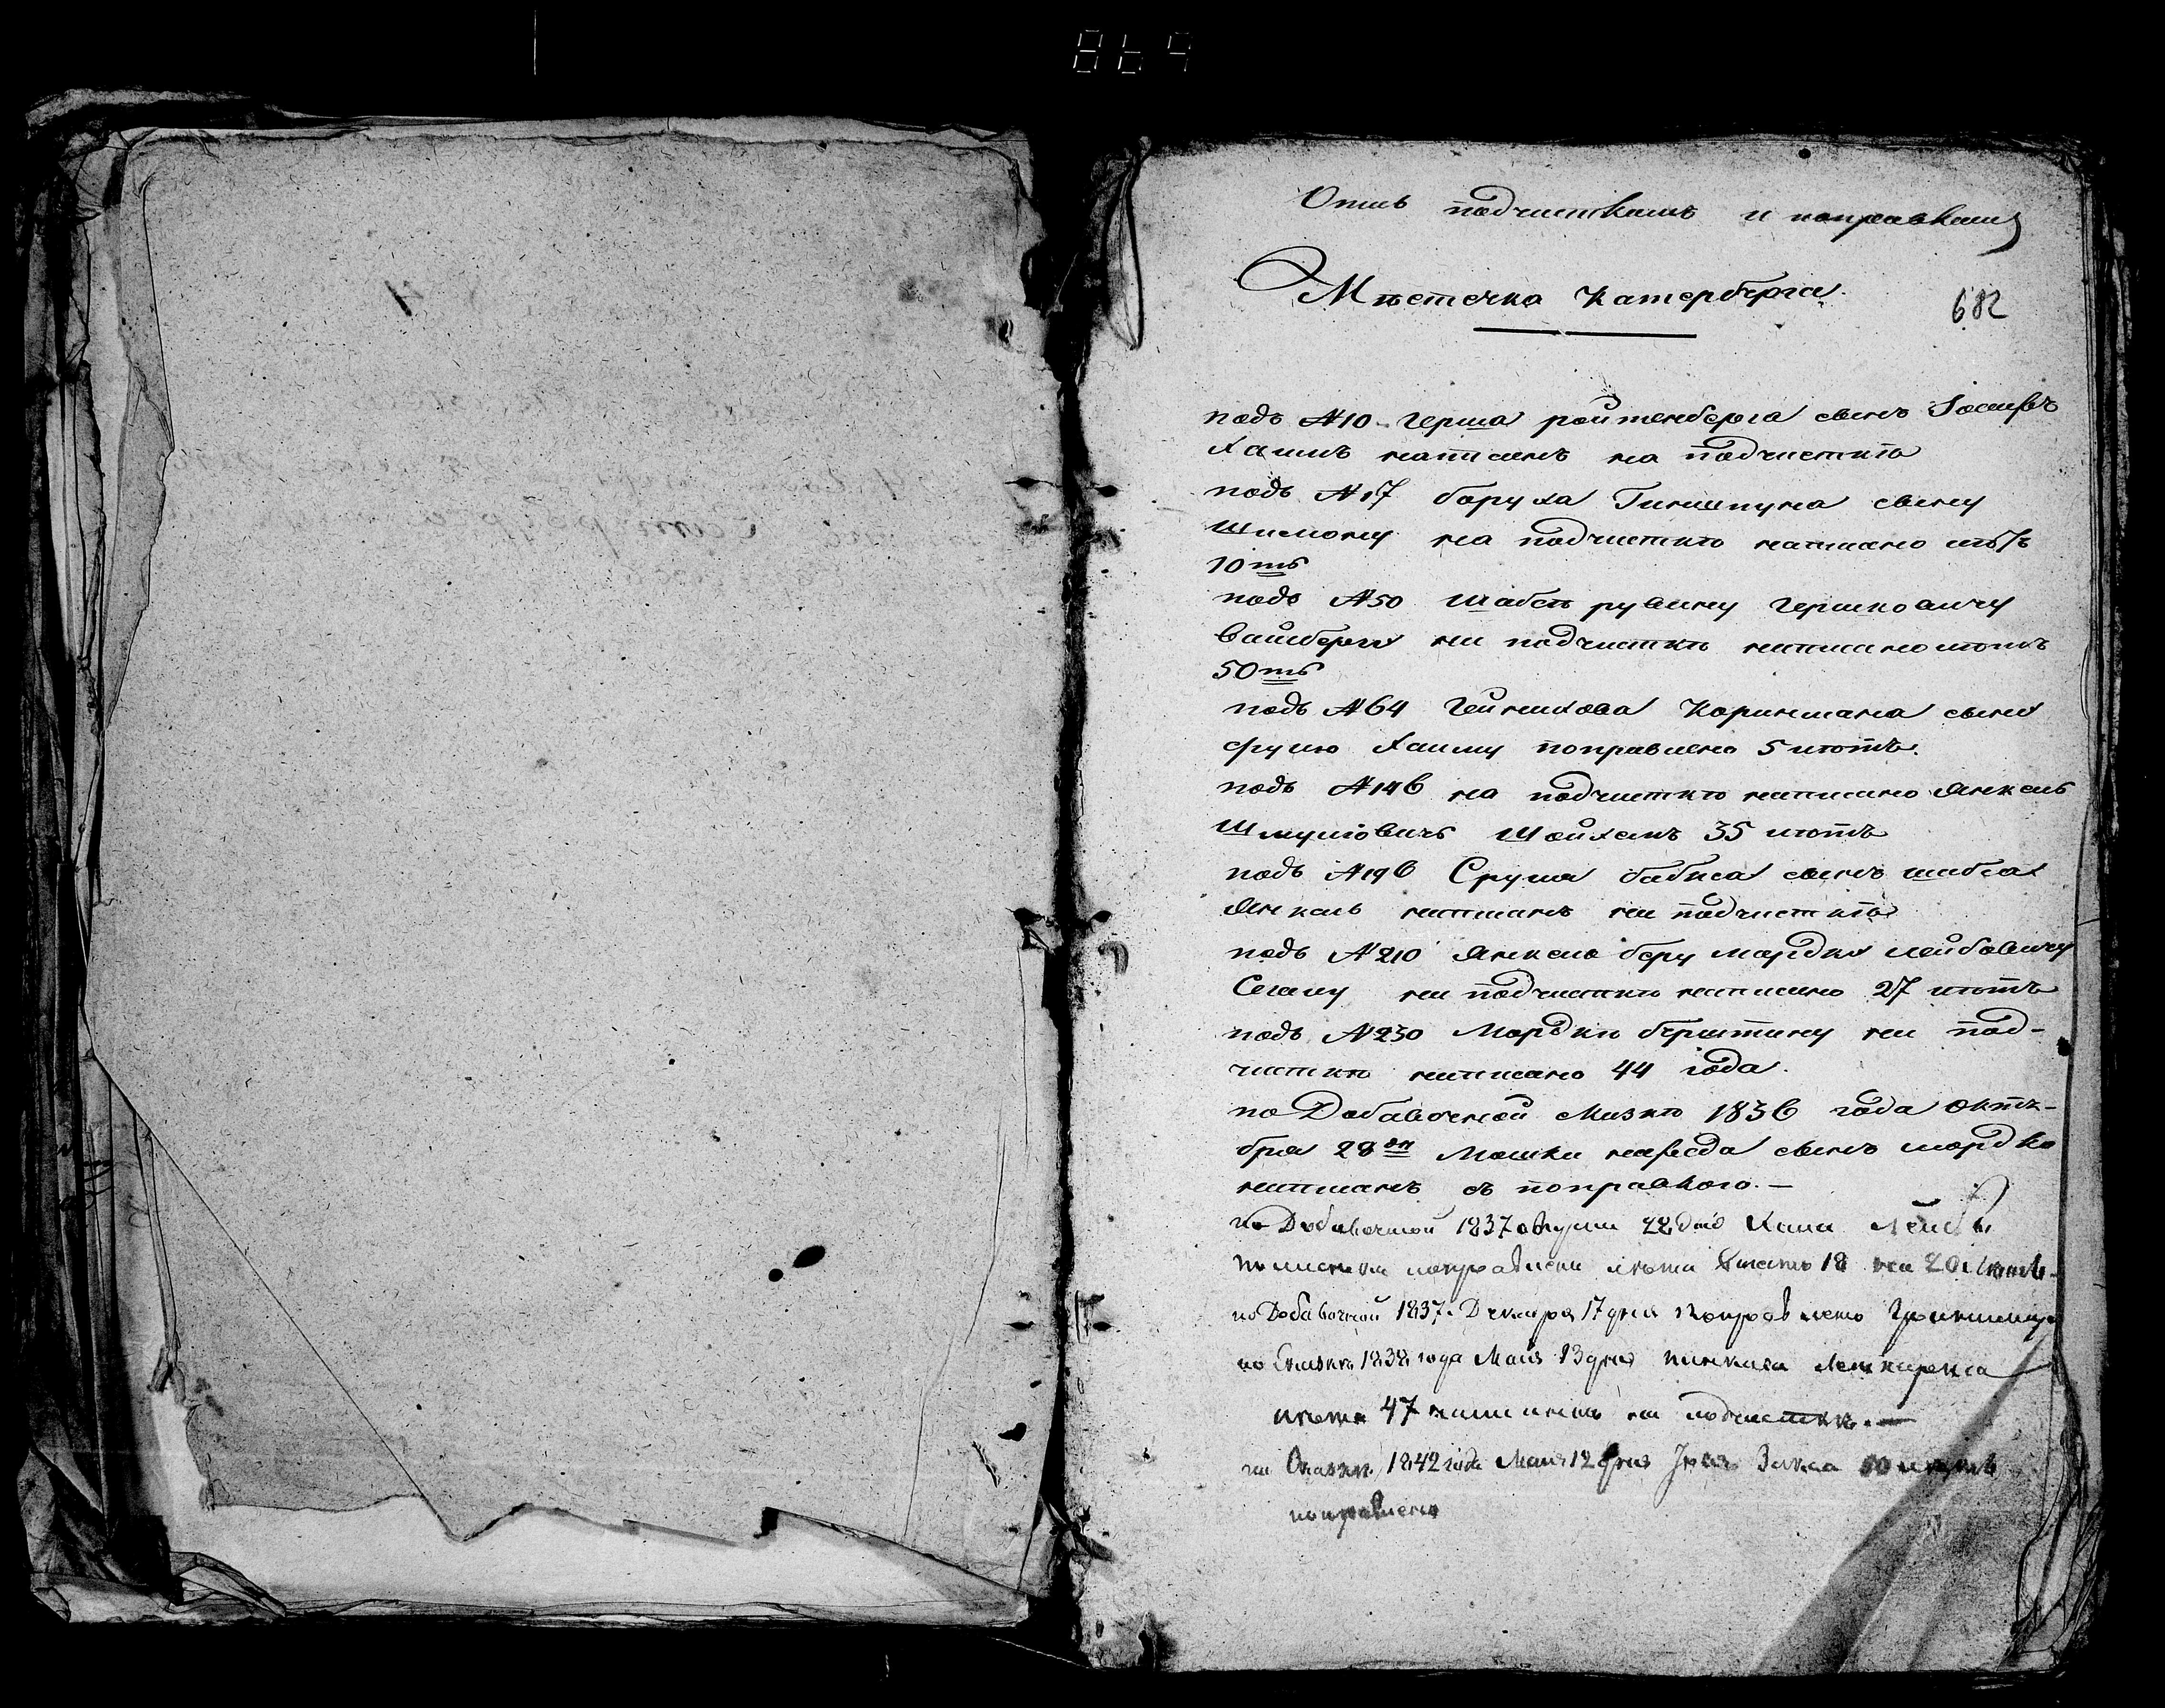 869
Опись подчисткамъ и поправкамъ
Мѣстечка Катербурга.
682
подъ №10. Герша ройтенберга сынъ Іосифъ
Хаимъ написанъ на подчисткѣ
подъ №17 боруха Гиншпуна сыну
Шимону на подчисткѣ написано лѣтъ
10тъ
подъ №50 Шабсѣ рувину Гершковичу
Вайнберга на подчисткѣ написано лѣтъ
50тъ
подъ №64 сына
Срулю Хаиму поправлено 5 лѣтъ.
подъ №146 на подчисткѣ написано Янкель
Шмулiовичъ Шойхетъ 35 лѣтъ
подъ №196 Сруля бабиса сынъ шабса
Янкель написанъ на подчисткѣ
подъ №210 Янкелю беру мордка лейбовичу
Сегалу на подчисткѣ написано 27 лѣтъ
подъ №230 Мордкѣ берштину на под-
чисткѣ написано 44 года.
по Добавочной сказкѣ 1836 года октя-
бря 28дн Мошки сынъ мордко
написанъ съ поправкою. —
по Добавочной 1837 августа 22 дня Хаима
поправлены лѣта 18 на 20 лѣтъ.
по Добавочной 1837. Декабря 17 дня поправлено
по Сказкѣ 1838 года Мая 13 дня пинкаса
лѣта 47 написаны на подчисткѣ. —
по Сказкѣ 1842 года Мая 12 дня Зелка лѣтъ
поправлено